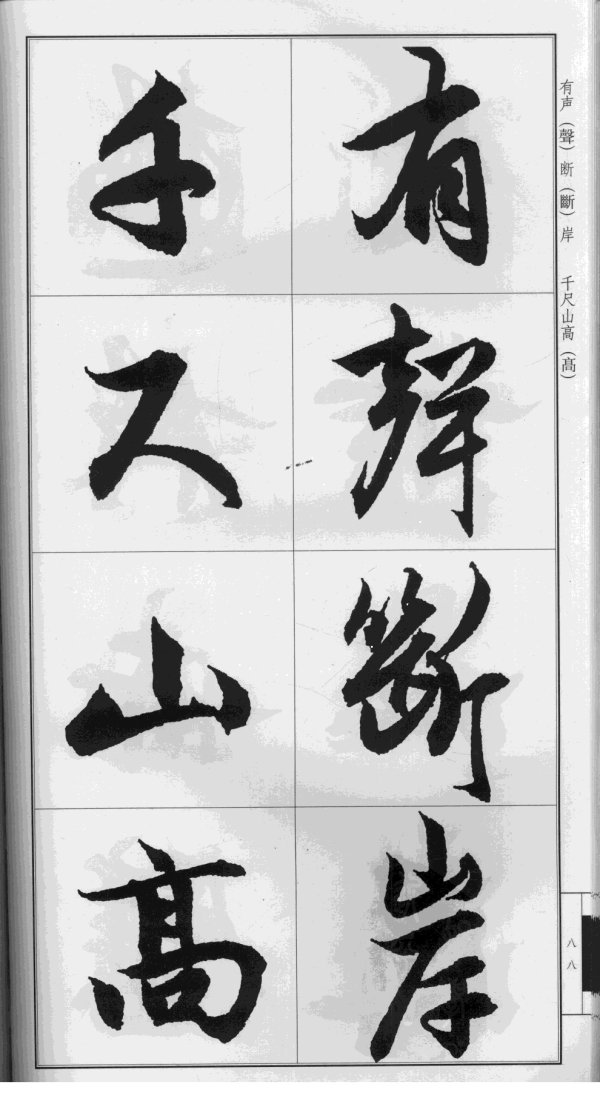 有声（聲）断（斷）岸　千尺山高（髙）
有聲斷岸
千尺山髙
八八